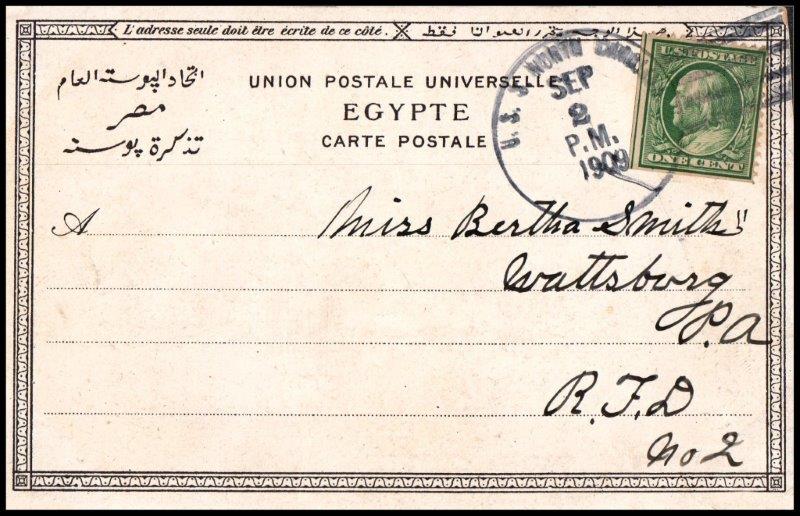 L'adresse seule doit être écrite de ce côté.
اتحاد البوسته العام
مصر
تذكرة بوسته
UNION POSTALE UNIVERSELLE
EGYPTE
CARTE POSTALE
U. S. S. NORTH
SEP
2
P.M.
1909
U.S. POSTAGE
ONE CENT
A Miss Bertha Smith
Wattsburg
P.A
R.F.D
No 2